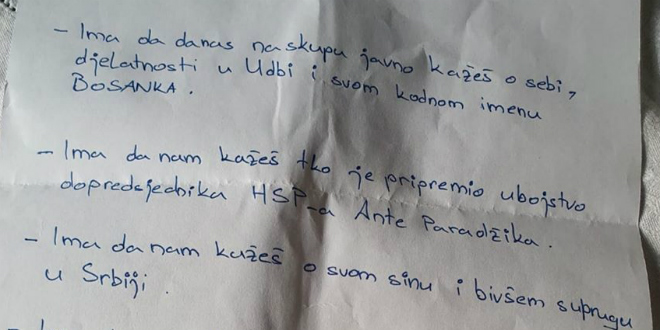 - Ima da danas na skupu javno kažeš o sebi,
djelatnosti u Udbi i svom kodnom imenu
BOSANKA.
- Ima da nam kažeš tko je pripremio ubojstvo
dopredsjednika HSP-a Ante Paradžika.
- Ima da nam kažeš o svom sinu i bivšem suprugu
u Srbiji.